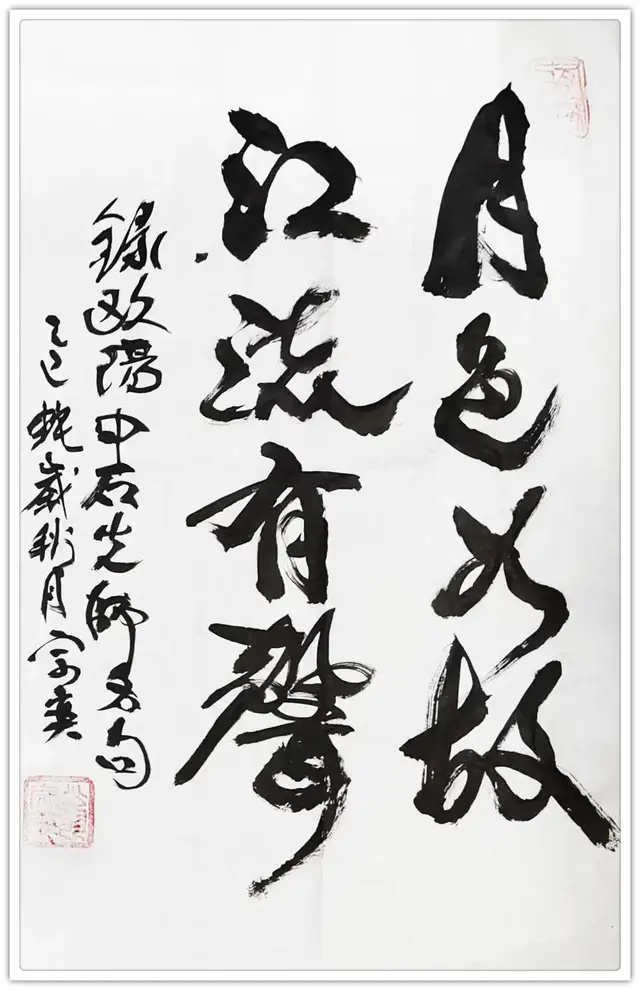 月色如故
江流有聲
錄欧陽中石先師名句
乙巳蛇歲秋月